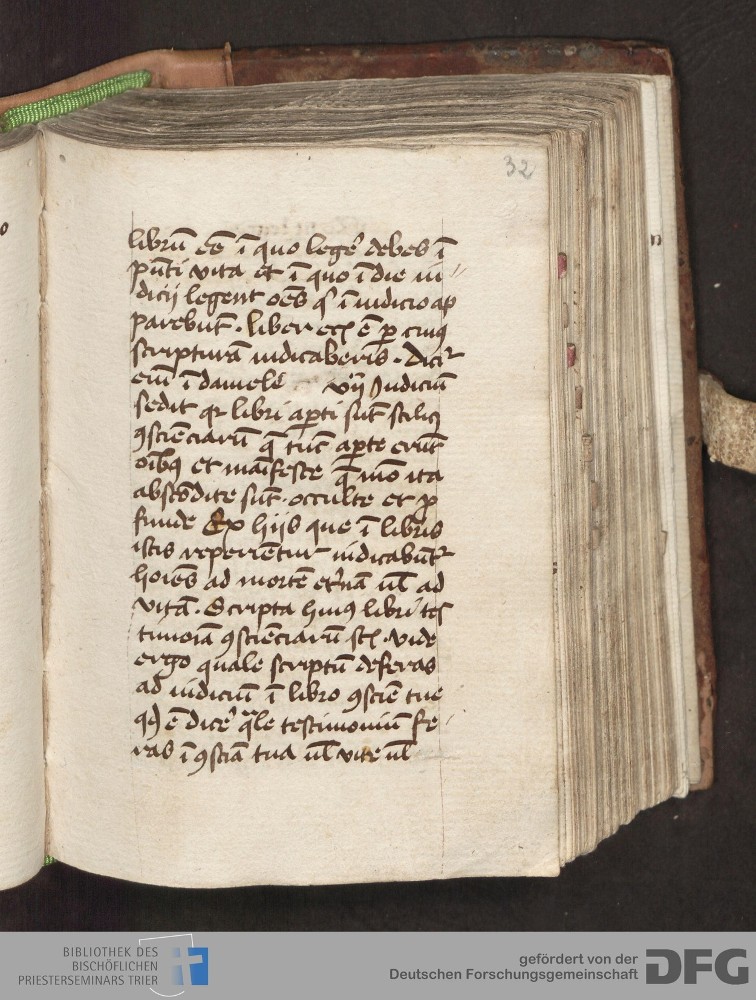 32
librū eē ī quo legeꝰ debes ī
pn̄ti vita et ī quo ī die iu
dicij legent oēs qͥ ī iudicio ap
parebūt · liber em̄ ē ꝑ cuiꝯ
scripturā iudicaberis · Dicit᷑
em̄ ī daniele vij Judiciū
sedit et libri aꝑti sūt scilicꝫ
ꝯsciēciarū q̄ tūc aꝑte erūt
oībꝯ et māifeste q̄ mō ita
abscōdite sūt · occulte et ꝓ
funde Ex hijs que ī libris
istis reperiētur iudicabūt᷑
hoīes ad mortē et̓nā ul̄ ad
vitā · Scripta huiꝯ libri tes
timoīa ꝯsciēciarū sūt · vide
ergo quale scriptū deferas
ad iudiciū ī libro ꝯsciē tue
qd̓ ē dice̓ q̄le testimoniū fe
ras ī ꝯsciā tua ul̄ vite ul̄
BIBLIOTHEK DES
BISCHÖFLICHEN
PRIESTERSEMINARS TRIER
gefördert von der
Deutschen Forschungsgemeinschaft
DFG